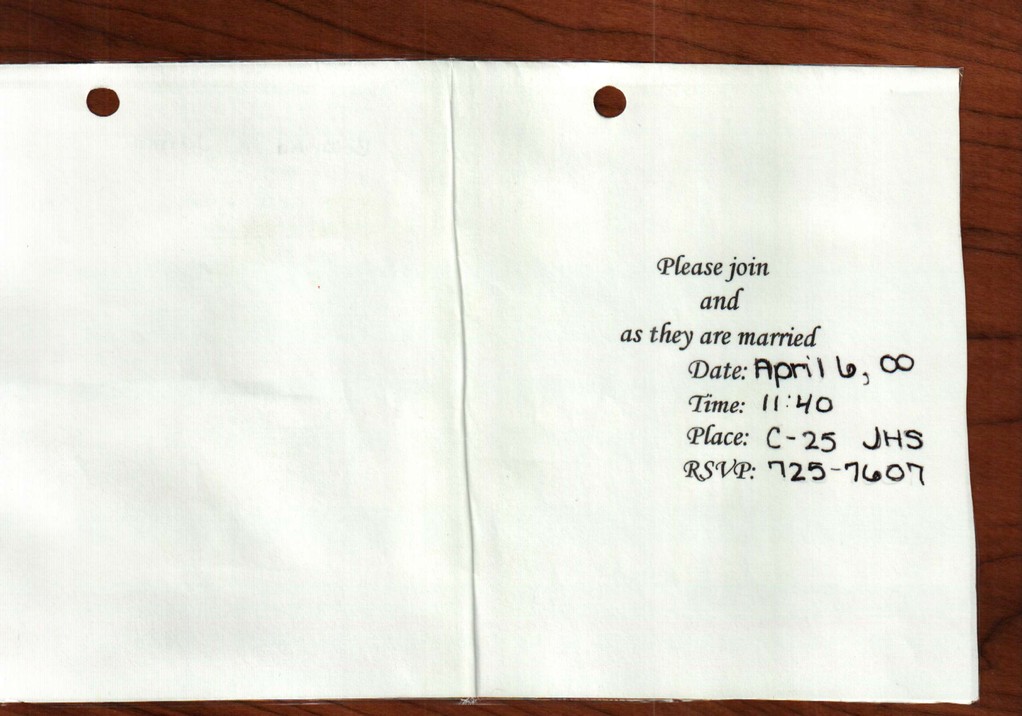 Please join
and
as they are married
Date: April 6, 00
Time: 11:40
Place: C-25 JHS
RSVP: 725-7607